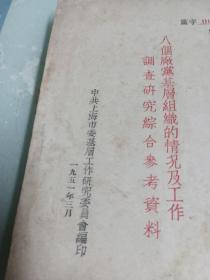 黨字
八個廠黨基層組織的情况及工作
調查研究綜合參考資料
中共上海市委基層工作研究委員會編印
一九五一年三月